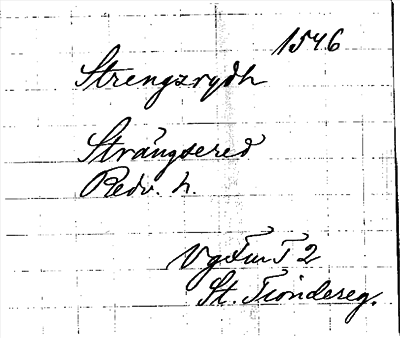 1546
Strengzrydh
Strängsered
Redv. h.
Vg Fu T 2
St. Tiondereg.